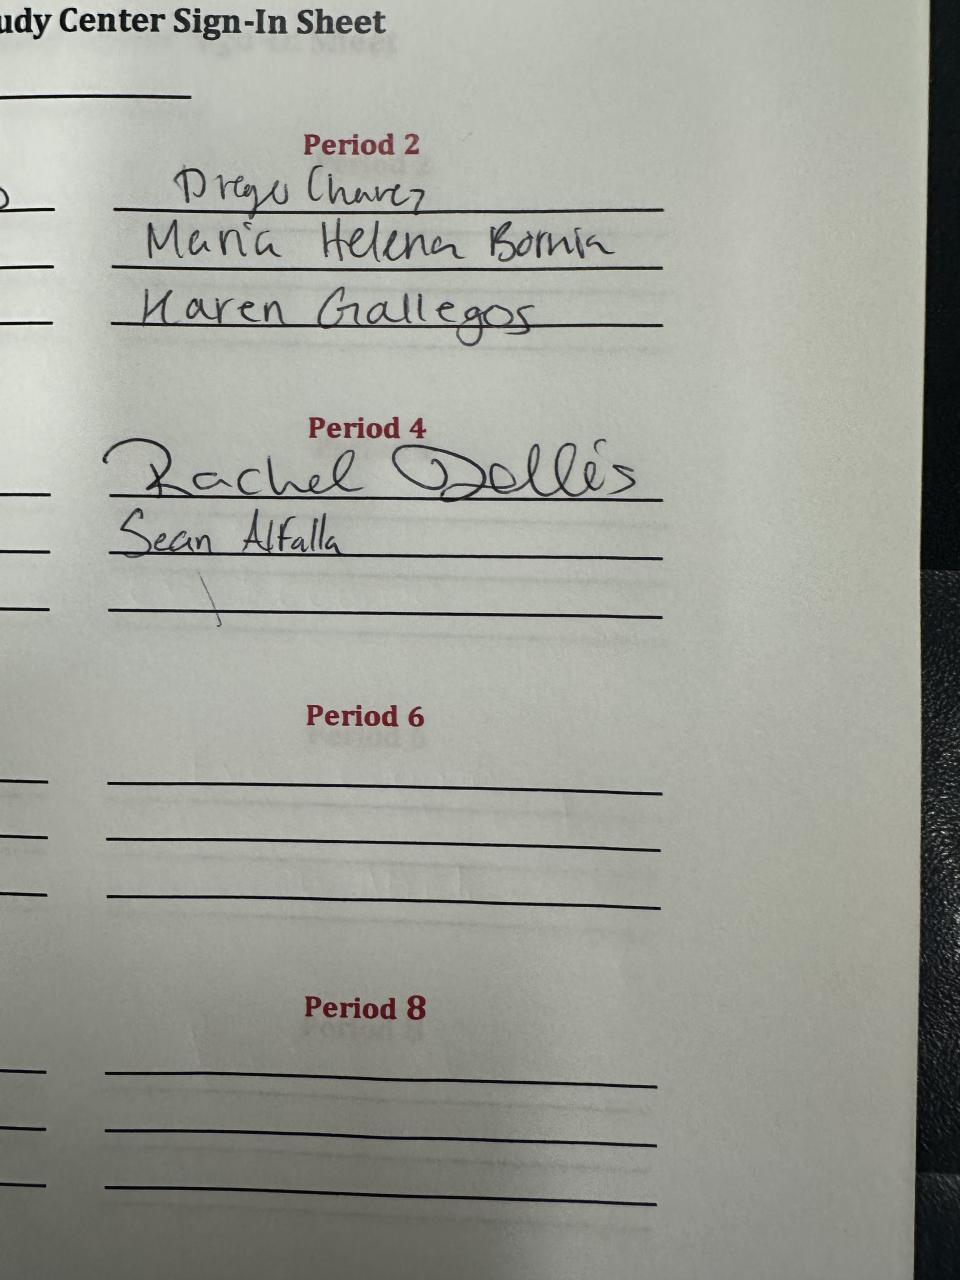 udy Center Sign-In Sheet
Period 2
Diego Chavez
Maria Helena Bornia
Karen Gallegos
Period 4
Rachel Dellés
Sean Alfalla
Period 6
Period 8